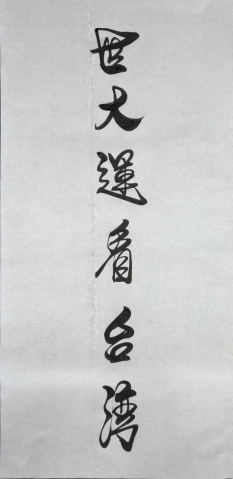 世大運看台湾